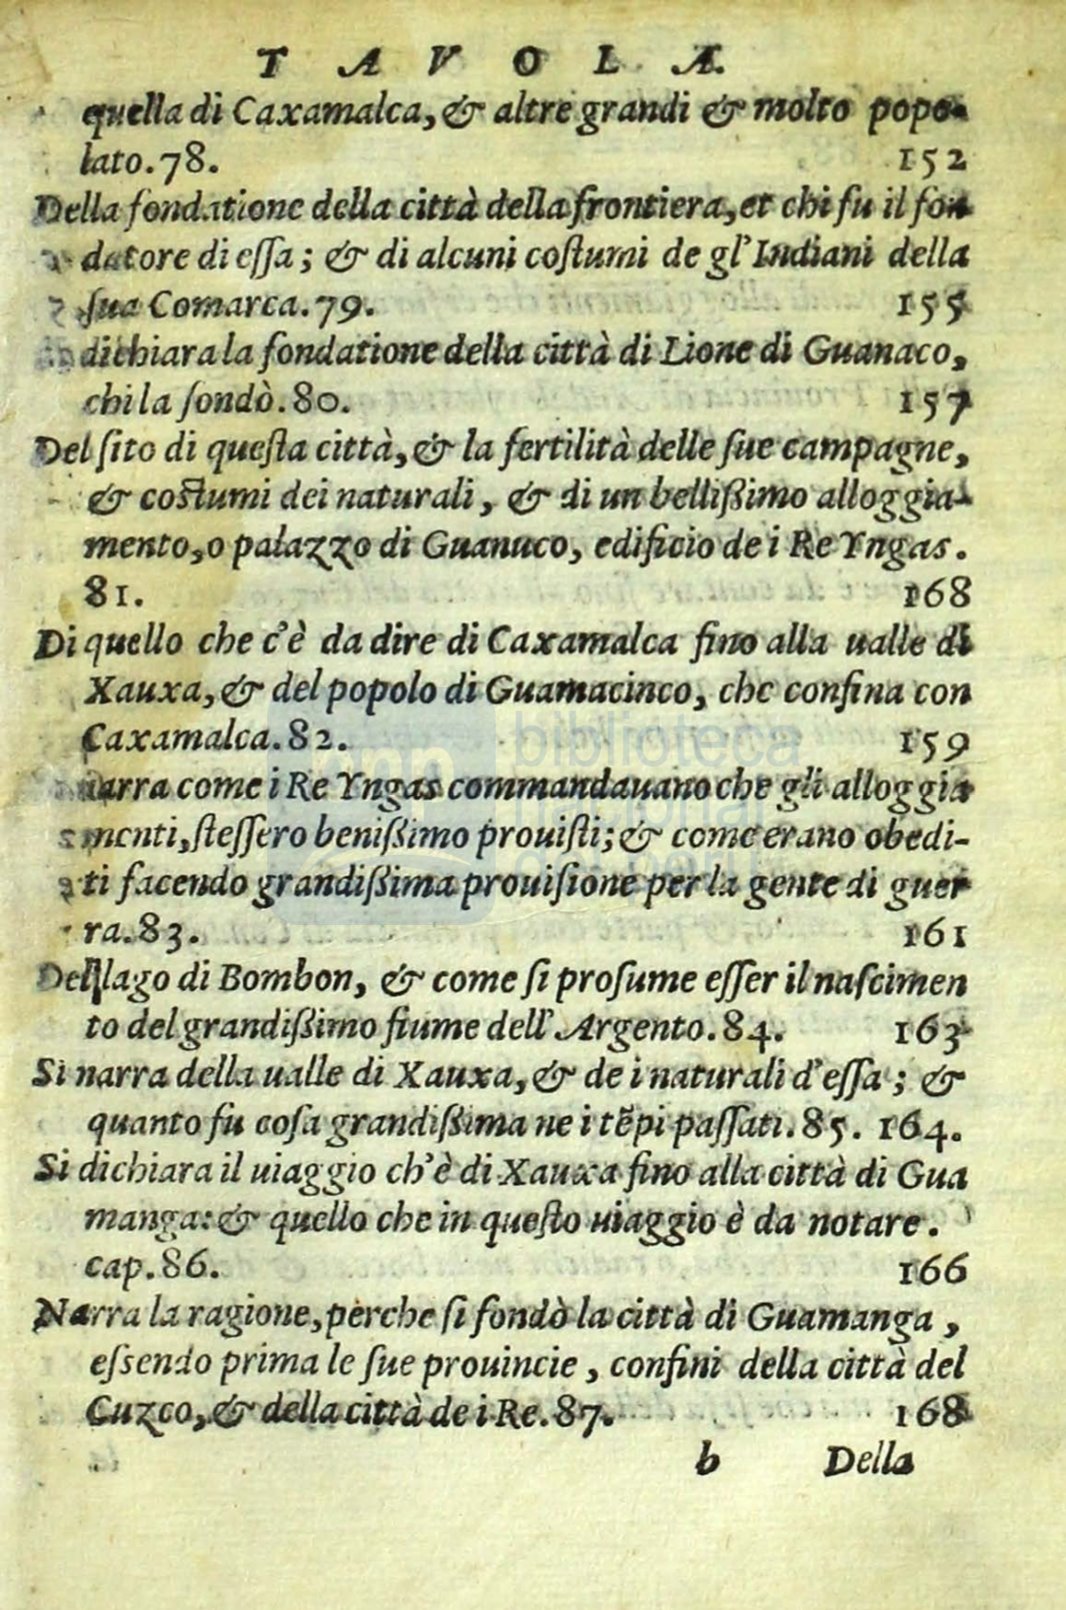 TAVOLA.
quella di Caxamalca, & altre grandi & molto popo-
lato. 78. 152
Della fondatione della città della frontiera, et chi fu il fon
datore di essa; & di alcuni costumi de gl' Indiani della
sua Comarca. 79. 155
dichiara la fondatione della città di Lione di Guanaco,
chi la fondò. 80. 157
Del sito di questa città, & la fertilità delle sue campagne,
& costumi dei naturali, & di un bellißimo alloggia-
mento, o palazzo di Guanuco, edificio de i Re Yngas.
81. 168
Di quello che c'è da dire di Caxamalca fino alla ualle di
Xauxa, & del popolo di Guamacinco, che confina con
Caxamalca. 82. 159
narra come i Re Yngas commandauano che gli alloggia
menti, stessero benißimo prouisti; & come erano obedi-
ti facendo grandißima prouisione per la gente di guer
ra. 83. 161
Del lago di Bombon, & come si prosume esser il nascimen
to del grandißimo fiume dell' Argento. 84. 163
Si narra della ualle di Xauxa, & de i naturali d'essa; &
quanto fu cosa grandißima ne i tẽpi passati. 85. 164.
Si dichiara il uiaggio ch'è di Xauxa fino alla città di Gua
manga: & quello che in questo uiaggio è da notare.
cap. 86. 166
Narra la ragione, perche si fondò la città di Guamanga,
essendo prima le sue prouincie, confini della città del
Cuzco, & della città de i Re. 87. 168
b Della
biblioteca
nacional